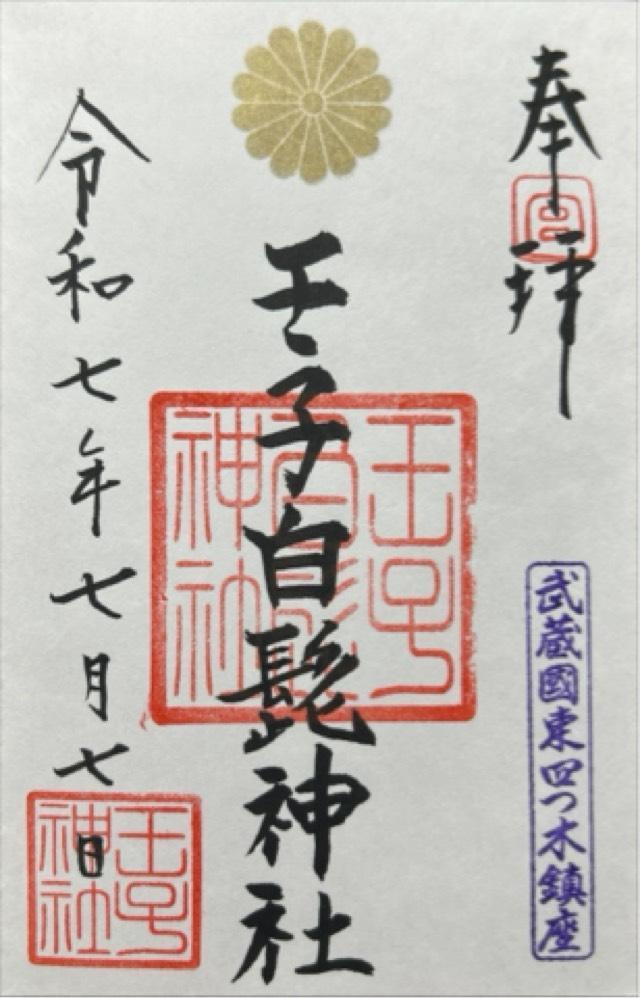 奉拝
宮
武蔵國東四つ木鎮座
王子白髭神社
王子
白
神社
令和七年七月七日
王子
神社